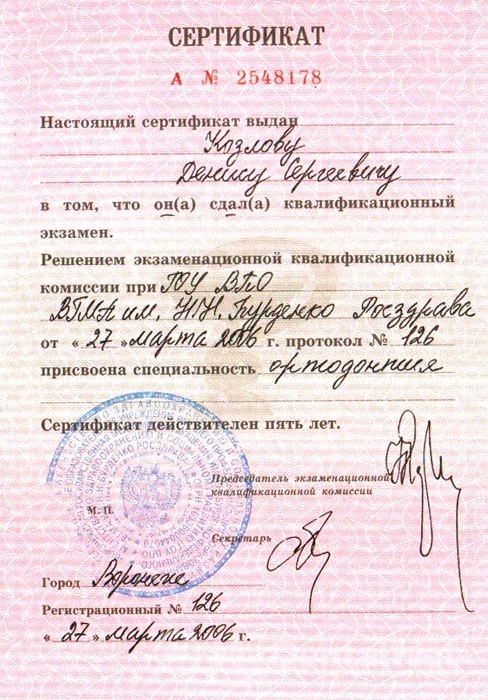 СЕРТИФИКАТ
А № 2548178
Настоящий сертификат выдан
Козлову
Денису Сергеевичу
в том, что он(а) сдал(а) квалификационный
экзамен.
Решением экзаменационной квалификационной
комиссии при ГОУ ВПО
ВГМА им. Н.Н. Бурденко Росздрава
от « 27 » марта 2006 г. протокол № 126
присвоена специальность ортодонтия
Сертификат действителен пять лет.
Председатель экзаменационной
квалификационной комиссии
М. П.
Секретарь
Город Воронеж
Регистрационный № 126
« 27 » марта 2006 г.